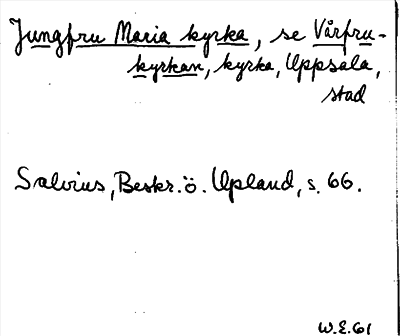 Jungfru Maria kyrka, se Vårfru-
kyrkan, kyrka, Uppsala,
stad
Salvius, Beskr. ö. Upland, s. 66.
W.E.61